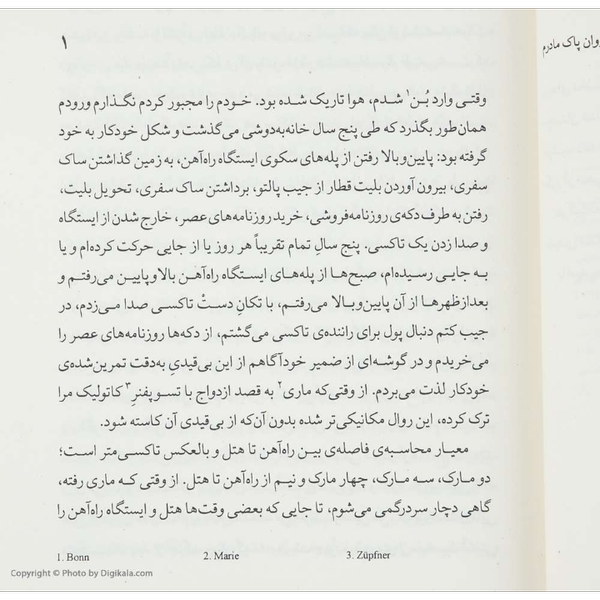 ۱
وقتـی وارد بُـن۱ شـدم، هـوا تاریـک شـده بود. خـودم را مجبور کردم نگـذارم ورودم
همان‌طور بگذرد که طی پنج سال خانه‌به‌دوشی می‌گذشت و شکل خودکار به خود
گرفته بود: پایین‌وبالا رفتن از پله‌های سکوی ایستگاه راه‌آهن، به زمین گذاشتن ساک
سفری، بیرون آوردن بلیت قطار از جیب پالتو، برداشتن ساک سفری، تحویل بلیت،
رفتن به طرف دکه‌ی روزنامه‌فروشی، خرید روزنامه‌های عصر، خارج شدن از ایستگاه
و صدا زدن یک تاکسی. پنج سالِ تمام تقریباً هر روز یا از جایی حرکت کرده‌ام و یا
به جایی رسیده‌ام، صبح‌ها از پله‌های ایستگاه راه‌آهن بالاوپایین می‌رفتم و
بعدازظهرها از آن پایین‌وبالا می‌رفتـم، با تکانِ دسـتْ تاکسـی صـدا مـی‌زدم، در
جیب کتم دنبال پول برای راننده‌ی تاکسی می‌گشتم، از دکه‌ها روزنامه‌های عصر را
می‌خریدم و در گوشه‌ای از ضمیر خودآگاهم از این بی‌قیدیِ به‌دقت تمرین‌شده‌ی
خودکار لذت می‌بردم. از وقتی‌که ماری۲ به قصد ازدواج با تسوپفنرِ۳ کاتولیک مرا
ترک کرده، این روال مکانیکی‌تر شده بدون آن‌که از بی‌قیدی آن کاسته شود.
معیـار محاسـبه‌ی فاصلـه‌ی بیـن راه‌آهن تا هتل و بالعکس تاکسـی‌متر است؛
دو مارک، سـه مارک، چهار مارک و نیم از راه‌آهن تا هتل. از وقتی که ماری رفته،
گاهی دچار سردرگمی می‌شوم، تا جایی که بعضی وقت‌ها هتل و ایستگاه راه‌آهن را
1. Bonn 2. Marie 3. Züpfner
روان پاک مادرم
Copyright © Photo by Digikala.com